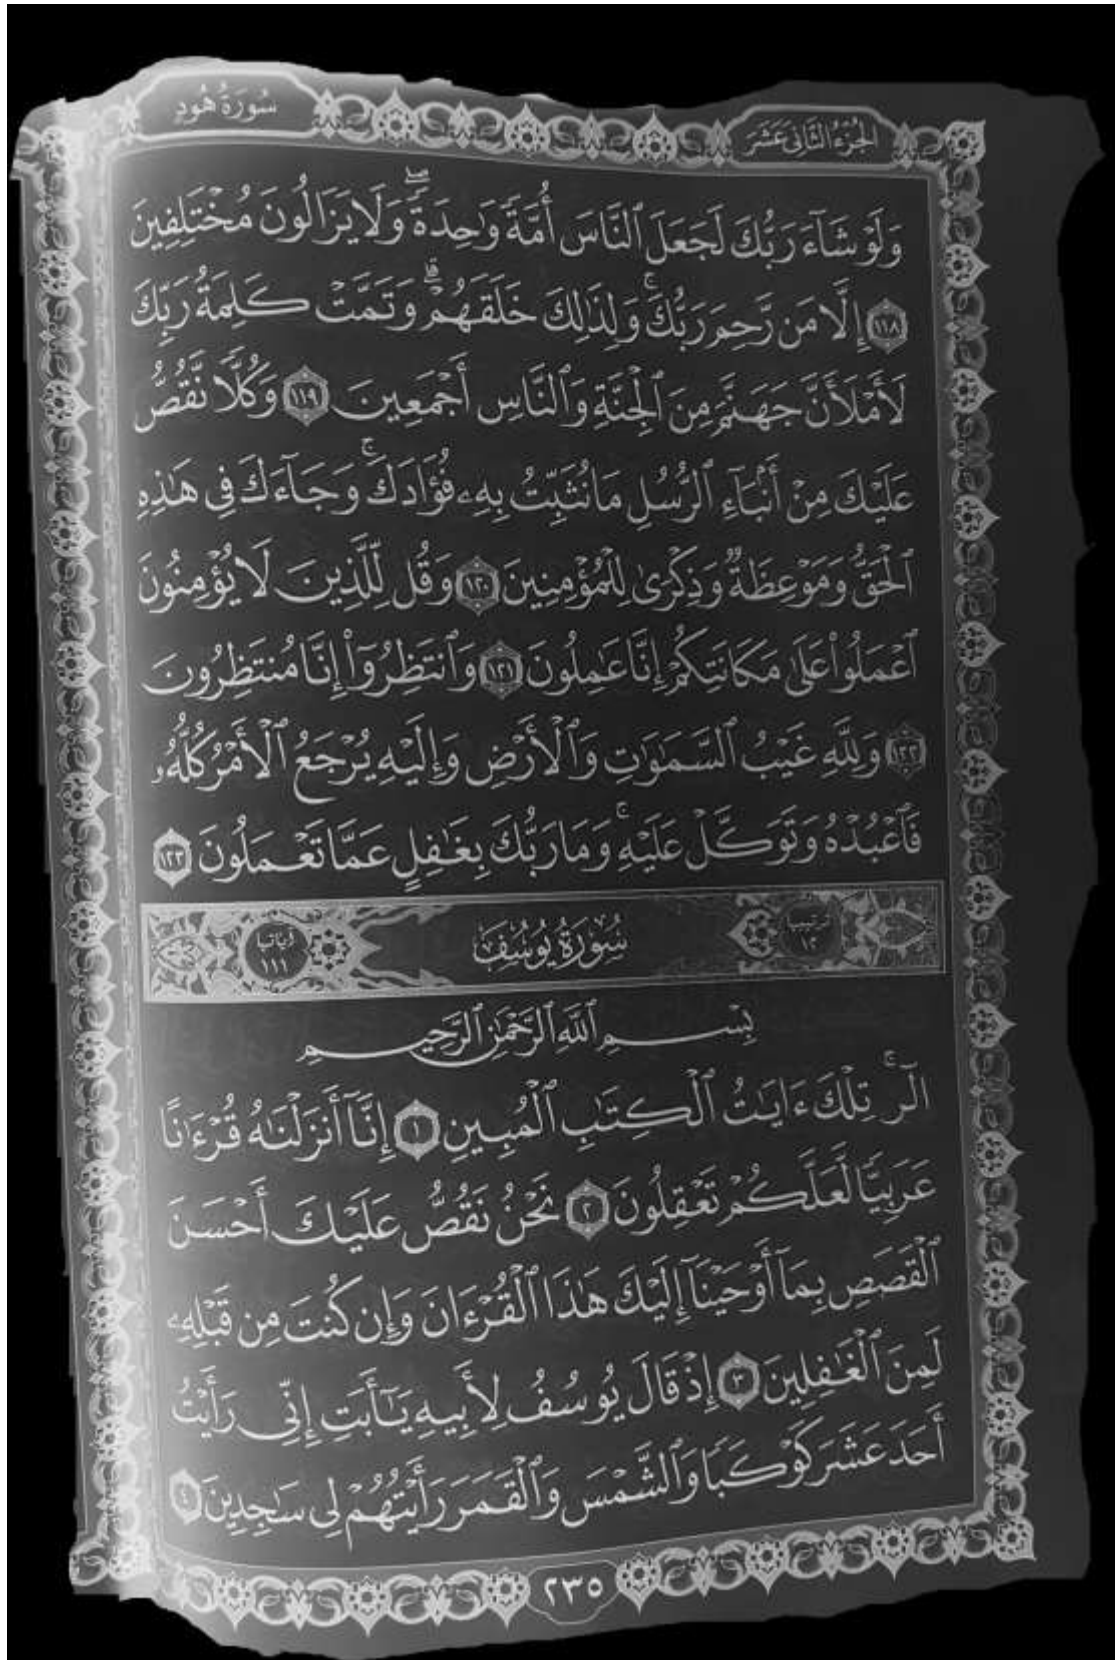 سُورَةُ هُودٍ
الجُزْءُ الثَّانِي عَشَرَ
وَلَوْ شَآءَ رَبُّكَ لَجَعَلَ ٱلنَّاسَ أُمَّةً وَٰحِدَةً ۖ وَلَا يَزَالُونَ مُخْتَلِفِينَ
١١٨ إِلَّا مَن رَّحِمَ رَبُّكَ ۚ وَلِذَٰلِكَ خَلَقَهُمْ ۗ وَتَمَّتْ كَلِمَةُ رَبِّكَ
لَأَمْلَأَنَّ جَهَنَّمَ مِنَ ٱلْجِنَّةِ وَٱلنَّاسِ أَجْمَعِينَ ١١٩ وَكُلًّا نَّقُصُّ
عَلَيْكَ مِنْ أَنۢبَآءِ ٱلرُّسُلِ مَا نُثَبِّتُ بِهِۦ فُؤَادَكَ ۚ وَجَآءَكَ فِى هَٰذِهِ
ٱلْحَقُّ وَمَوْعِظَةٌ وَذِكْرَىٰ لِلْمُؤْمِنِينَ ١٢٠ وَقُل لِّلَّذِينَ لَا يُؤْمِنُونَ
ٱعْمَلُوا۟ عَلَىٰ مَكَانَتِكُمْ إِنَّا عَٰمِلُونَ ١٢١ وَٱنتَظِرُوٓا۟ إِنَّا مُنتَظِرُونَ
١٢٢ وَلِلَّهِ غَيْبُ ٱلسَّمَٰوَٰتِ وَٱلْأَرْضِ وَإِلَيْهِ يُرْجَعُ ٱلْأَمْرُ كُلُّهُۥ
فَٱعْبُدْهُ وَتَوَكَّلْ عَلَيْهِ ۚ وَمَا رَبُّكَ بِغَٰفِلٍ عَمَّا تَعْمَلُونَ ١٢٣
ترتيبها ١٢ سُورَةُ يُوسُفَ آياتها ١١١
بِسْمِ ٱللَّهِ ٱلرَّحْمَٰنِ ٱلرَّحِيمِ
الٓر ۚ تِلْكَ ءَايَٰتُ ٱلْكِتَٰبِ ٱلْمُبِينِ ١ إِنَّآ أَنزَلْنَٰهُ قُرْءَٰنًا
عَرَبِيًّا لَّعَلَّكُمْ تَعْقِلُونَ ٢ نَحْنُ نَقُصُّ عَلَيْكَ أَحْسَنَ
ٱلْقَصَصِ بِمَآ أَوْحَيْنَآ إِلَيْكَ هَٰذَا ٱلْقُرْءَانَ وَإِن كُنتَ مِن قَبْلِهِۦ
لَمِنَ ٱلْغَٰفِلِينَ ٣ إِذْ قَالَ يُوسُفُ لِأَبِيهِ يَٰٓأَبَتِ إِنِّى رَأَيْتُ
أَحَدَ عَشَرَ كَوْكَبًا وَٱلشَّمْسَ وَٱلْقَمَرَ رَأَيْتُهُمْ لِى سَٰجِدِينَ ٤
٢٣٥